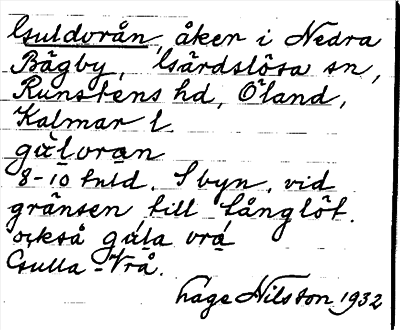 Guldvrån, åker i Nedra
Bägby, Gärdslösa sn,
Runstens hd, Öland,
Kalmar l.
gu̱lvra̱n
8-10 tnld. I byn, vid
gränsen till Långlöt.
också gúla vrá
Gulla-Vrå.
Hage Nilsson 1932